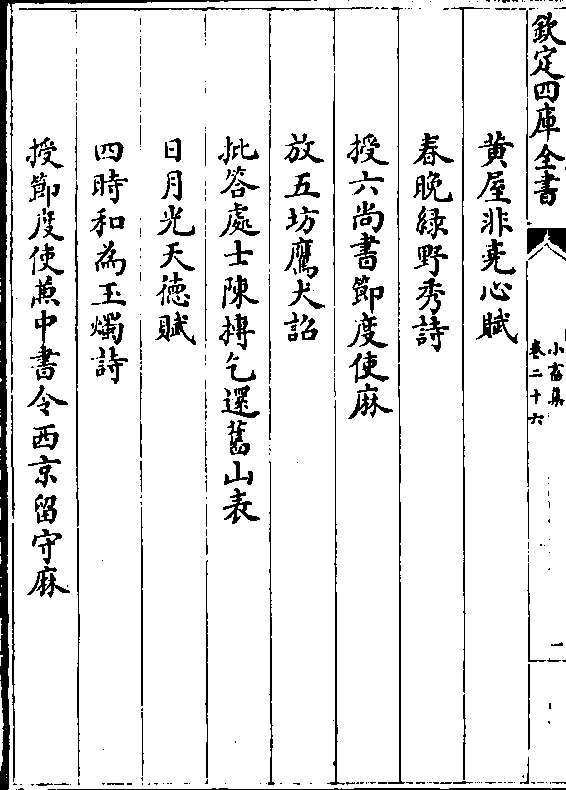 欽定四庫全書
小畜集
卷二十六
二
黃屋非堯心賦
春晚綠野秀詩
授六尚書節度使麻
放五坊鷹犬詔
批答處士陳摶乞還舊山表
日月光天德賦
四時和為玉燭詩
授節度使兼中書令西京留守麻